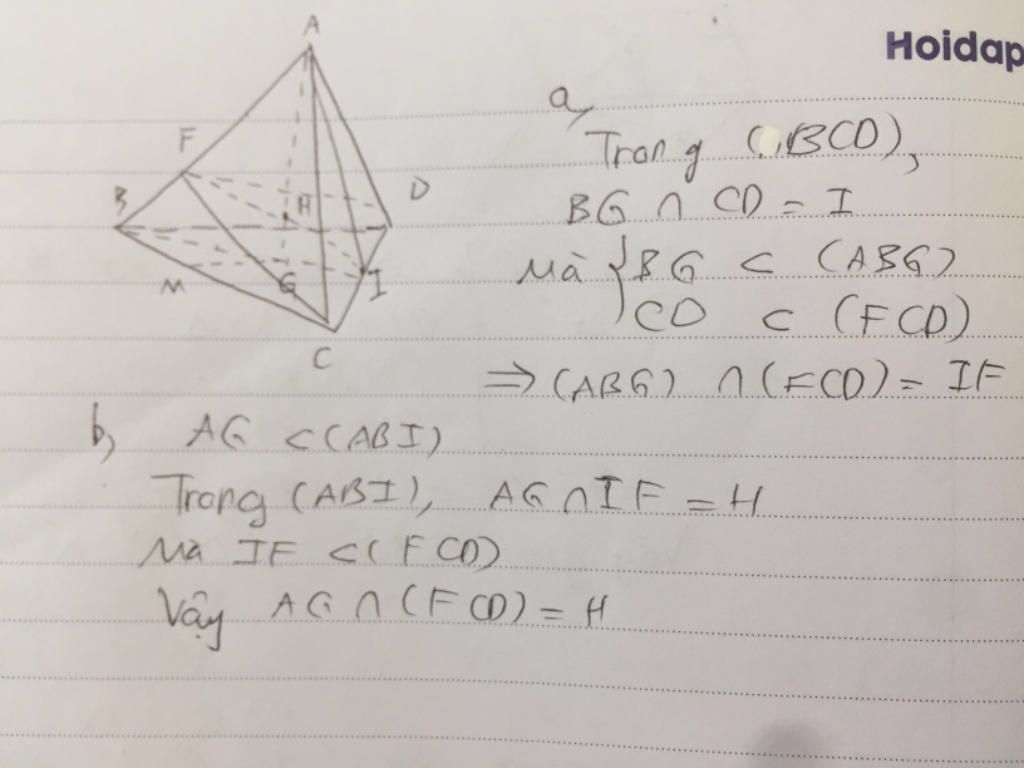 Hoidap
A
F
B
H
D
M
G
I
C
a,
Trong (BCD),
BG ∩ CD = I
Mà { BG ⊂ (ABG)
CD ⊂ (FCD)
⇒ (ABG) ∩ (FCD) = IF
b,
AG ⊂ (ABI)
Trong (ABI), AG ∩ IF = H
Mà IF ⊂ (FCD)
Vậy AG ∩ (FCD) = H